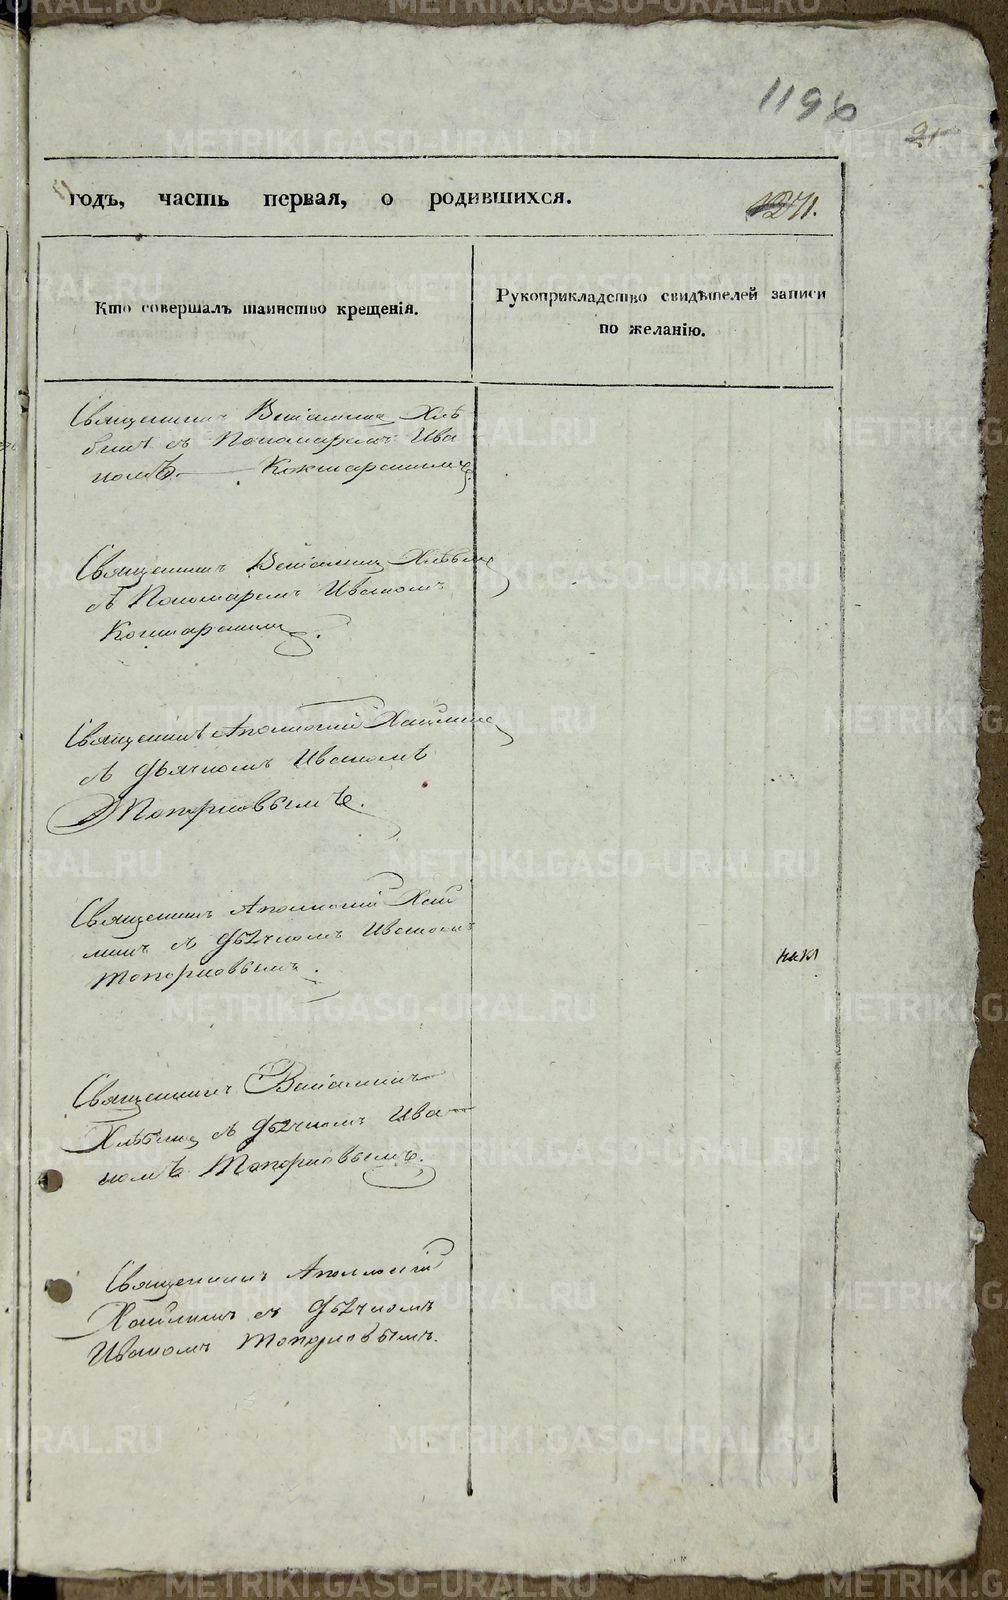 1196
21
годъ, часть первая, о родившихся.
1271.
Кто совершалъ таинство крещенія.
Рукоприкладство свидѣтелей записи
по желанію.
Священникъ Веніаминъ Хлѣ
бинъ съ Пономаремъ Ива
номъ Кокшарскимъ
Священникъ Веніаминъ Хлѣбинъ
съ Пономаремъ Иваномъ
Священникъ Аполлоній
съ Дьячкомъ Иваномъ
Топорковымъ.
Священникъ Аполлоній
съ Дьячкомъ Иваномъ
Топорковымъ.
Священникъ Веніаминъ
Хлѣбинъ съ Дьячкомъ Ива
номъ Топорковымъ.
Священникъ Аполлоній
съ Дьячкомъ
Иваномъ Топорковымъ.
METRIKI.GASO-URAL.RU